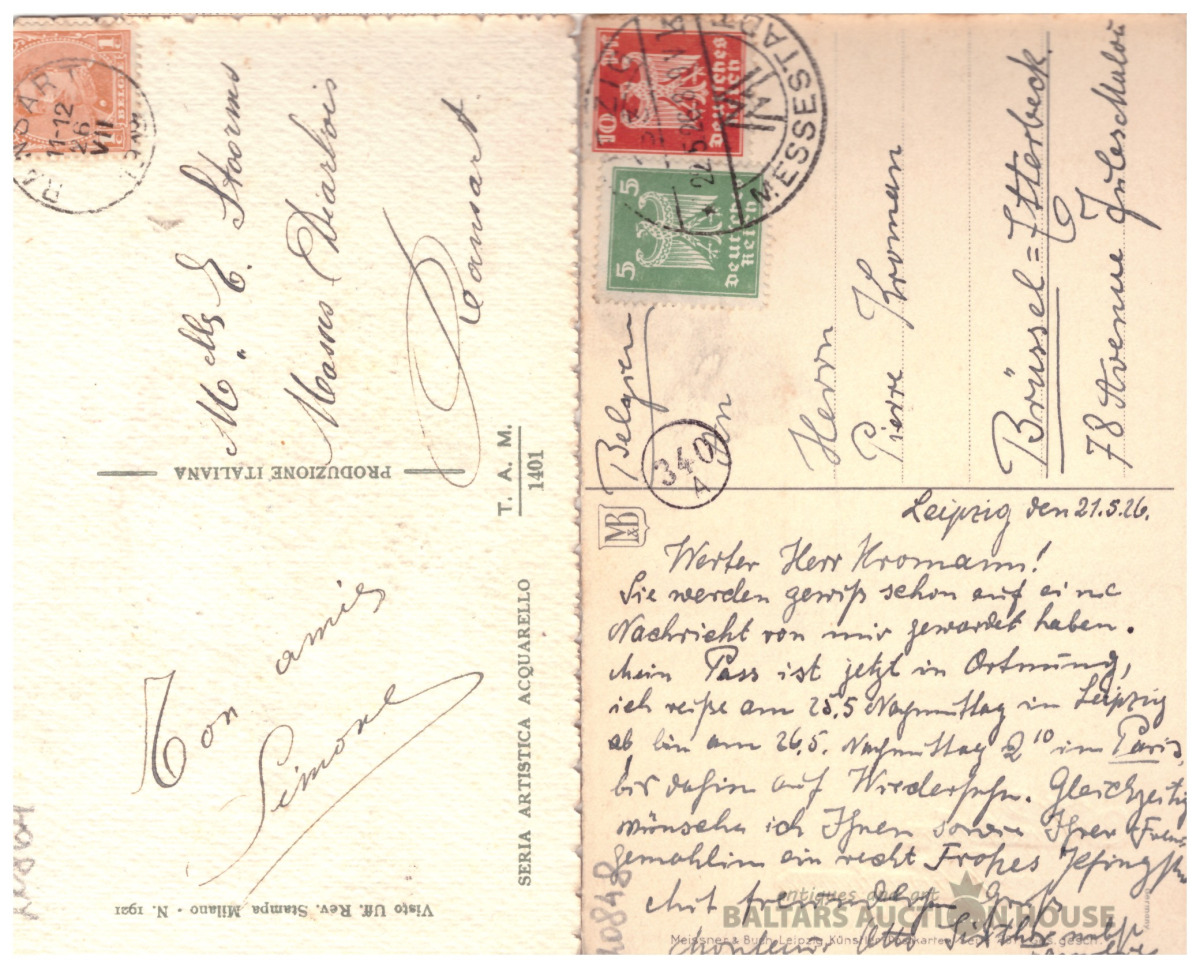 1
BELGI
RANSART
11-12
26
VII
Melle E. Stoorms
Masus Diarbois
Ransart
PRODUZIONE ITALIANA
T. A. M.
1401
Ton amie
Simone
SERIA ARTISTICA ACQUARELLO
Visto Uff. Rev. Stampa Milano - N. 1921
10 Deutsches Reich
5 5 Deutsches Reich
MESSESTADT
Belgien
An
340
A
Herrn
Pierre Kroman
Brüssel=Etterbeck
78 Avenue Jules Malou
M&B
Leipzig den 21.5.26.
Werter Herr Kromann!
Sie werden gewiß schon auf eine
Nachricht von mir gewartet haben.
Mein Pass ist jetzt in Ortnung,
ich reiße am 25.5 Nachmittag in Leipzig
ab bin am 26.5. Nachmittag 2 10 in Paris,
bis dahin auf Wiedersehn. Gleichzeitig
wünsche ich Ihnen sowie Ihrer Frau
gemahlin ein recht Frohes Pfingst
Mit freundlichem Gruß
Monteur Otto
antiques and art
BALTARS AUCTION HOUSE
Meissner & Buch, Leipzig, Künstler-Postkarten
10848